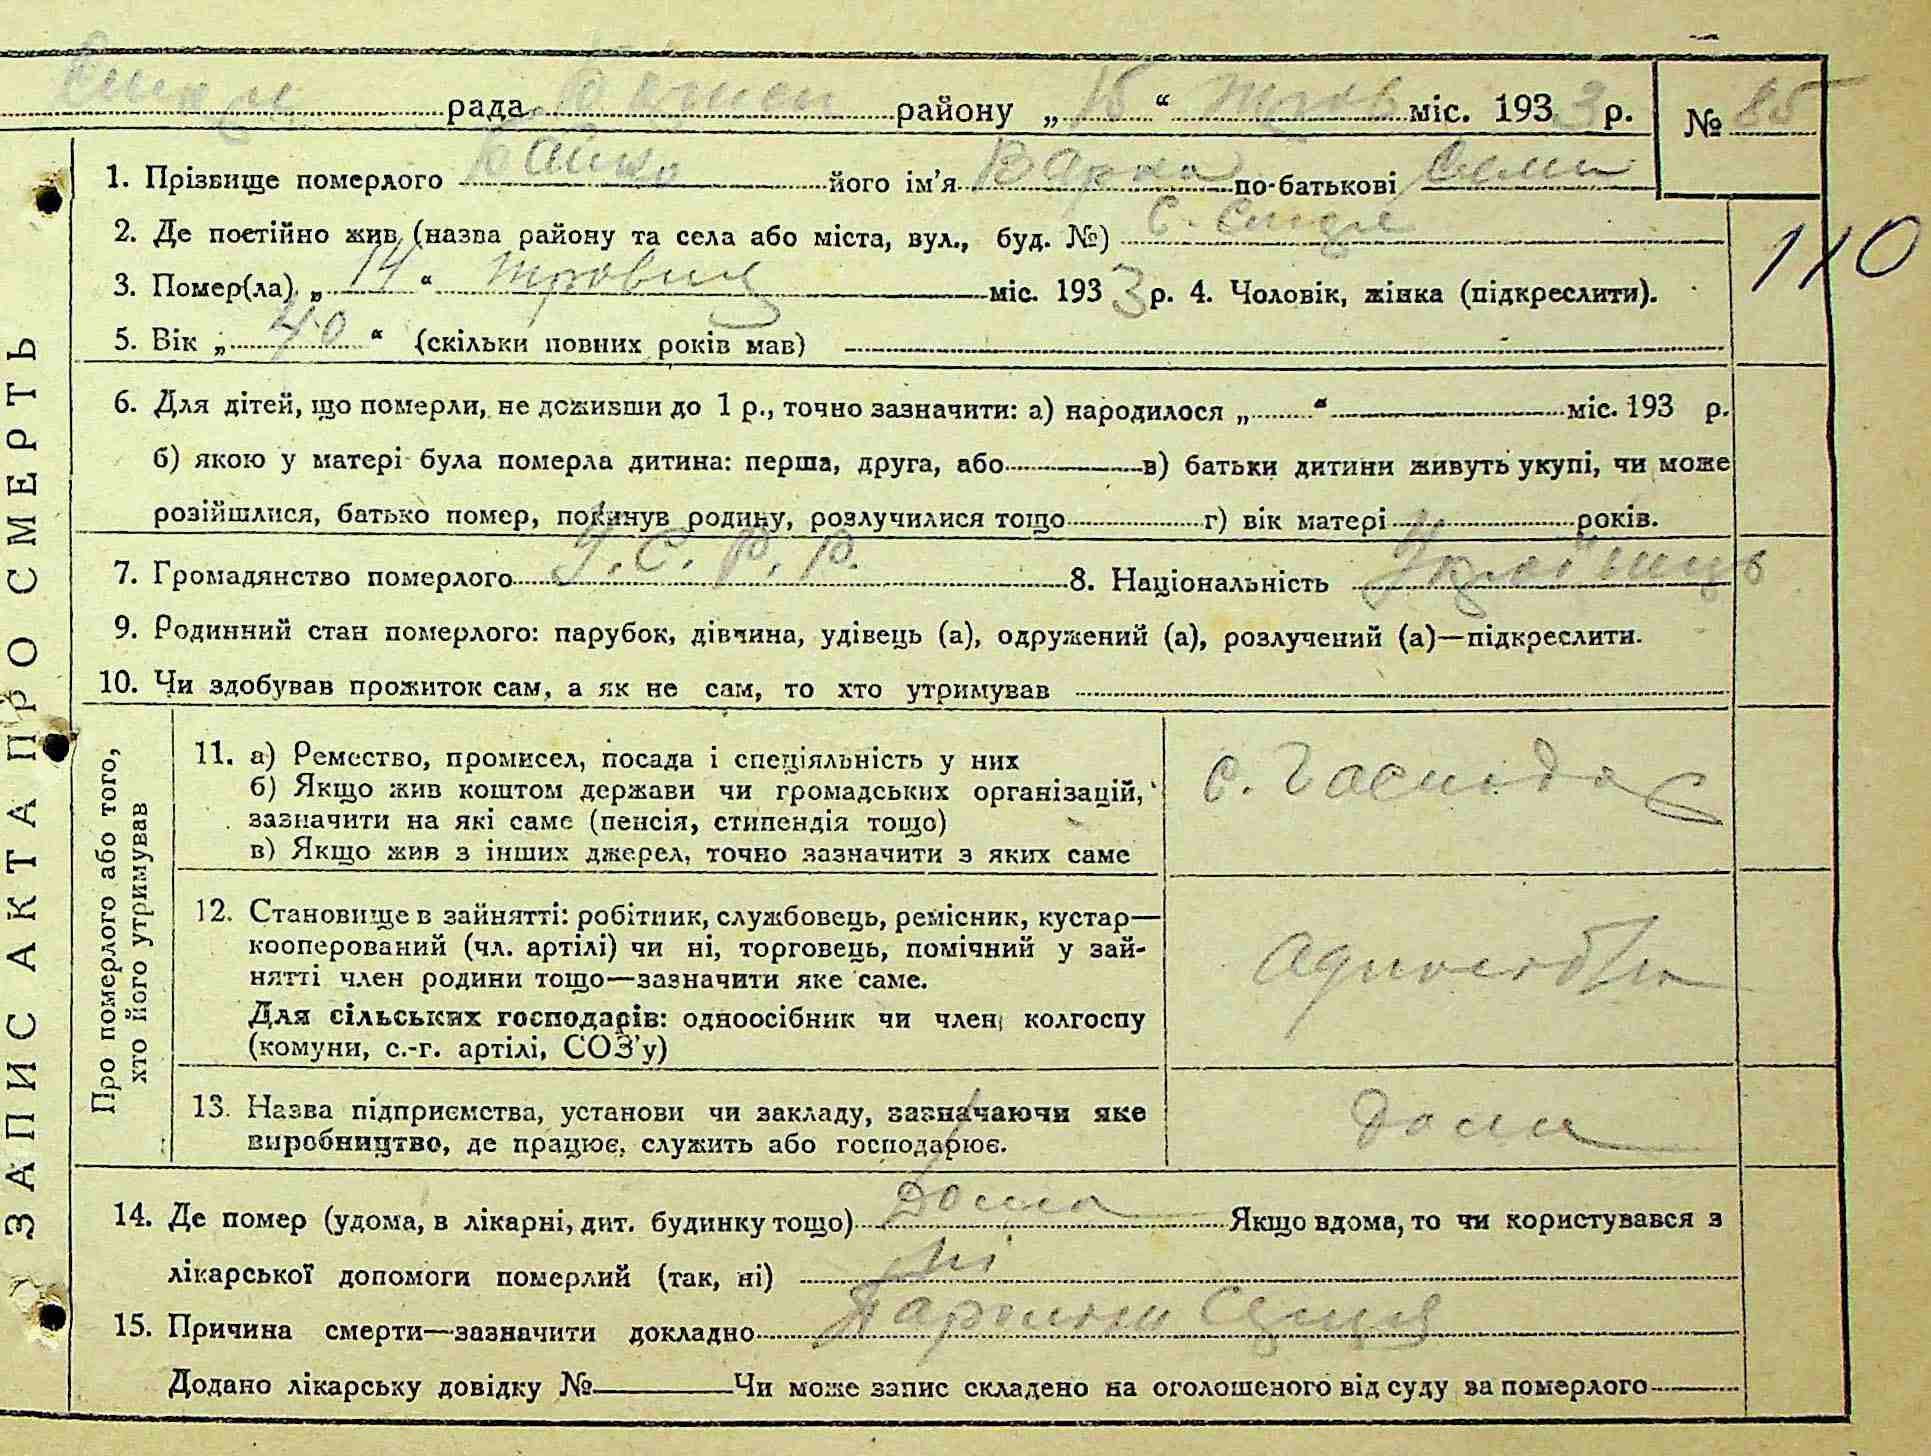 рада районну „ 15 “ Трав міс. 193 3 р. № 85
1. Прізвище померлого Байко його ім'я Варка по-батькові Семи
2. Де постійно жив (назва району та села або міста, вул., буд. №) с.
3. Помер(ла) „ 14 “ травня міс. 193 3 р. 4. Чоловік, жінка (підкреслити).
110
5. Вік „ 40 “ (скільки повних років мав)
6. Для дітей, що померли, не доживши до 1 р., точно зазначити: а) народилося „ “ міс. 193 р.
б) якою у матері була померла дитина: перша, друга, або в) батьки дитини живуть укупі, чи може
розійшлися, батько помер, покинув родину, розлучилися тощо г) вік матері років.
7. Громадянство померлого У.С.Р.Р. 8. Національність Українць
9. Родинний стан померлого: парубок, дівчина, удівець (а), одружений (а), розлучений (а)—підкреслити.
10. Чи здобував прожиток сам, а як не сам, то хто утримував
ЗАПИС АКТА ПРО СМЕРТЬ
Про померлого або того,
хто його утримував
11. а) Ремество, промисел, посада і спеціяльність у них
б) Якщо жив коштом держави чи громадських організацій,
зазначити на які саме (пенсія, стипендія тощо)
в) Якщо жив з інших джерел, точно зазначити з яких саме
с. Господар
12. Становище в зайнятті: робітник, службовець, ремісник, кустар—
кооперований (чл. артілі) чи ні, торговець, помічний у зай-
нятті член родини тощо—зазначити яке саме.
Для сільських господарів: одноосібник чи член колгоспу
(комуни, с.-г. артілі, СОЗ'у)
13. Назва підприємства, установи чи закладу, зазначаючи яке
виробництво, де працює, служить або господарює.
Дома
14. Де помер (удома, в лікарні, дит. будинку тощо) Дома Якщо вдома, то чи користувався з
лікарської допомоги померлий (так, ні) ні
15. Причина смерти—зазначити докладно
Додано лікарську довідку № Чи може запис складено на оголошеного від суду за померлого